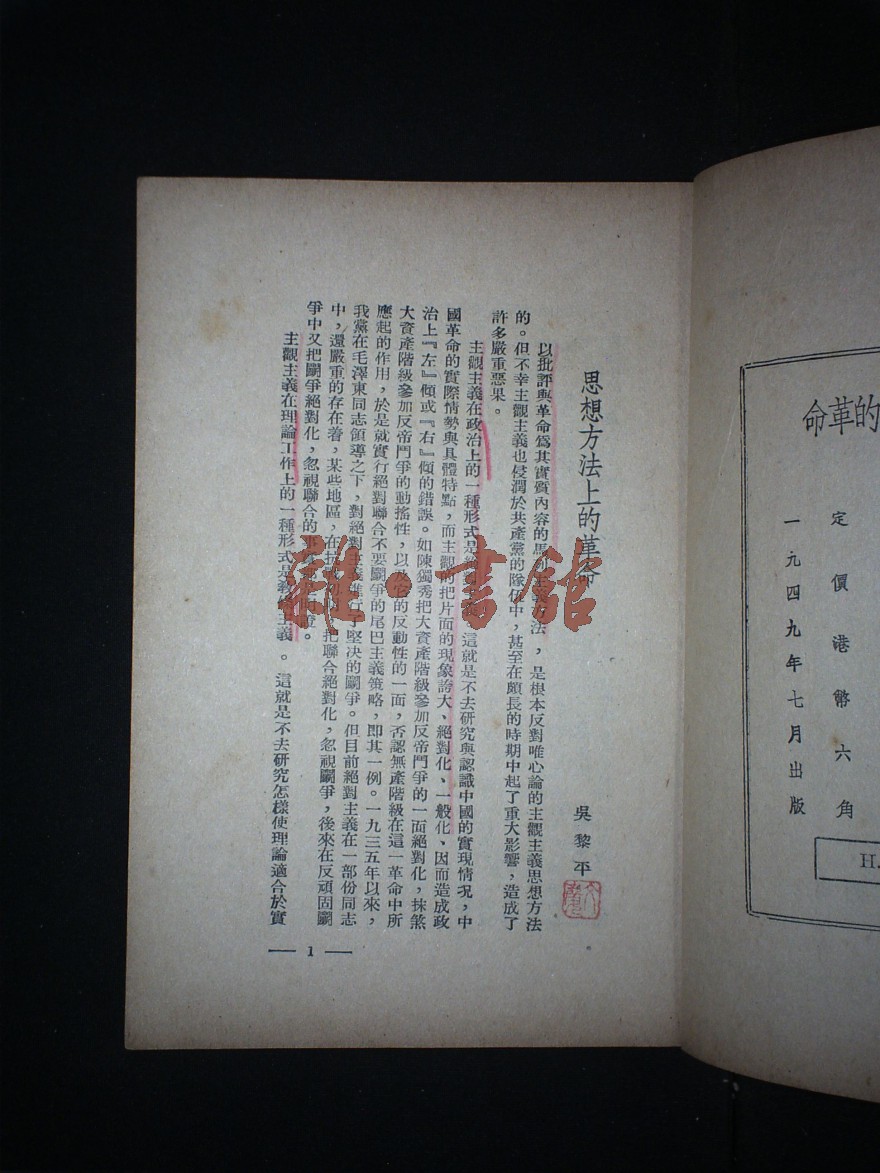 的革命
定價港幣六角
一九四九年七月出版
H.
思想方法上的革命
吳黎平
以批評與革命爲其實質內容的馬列主義方法，是根本反對唯心論的主觀主義思想方法
的。但不幸主觀主義也侵潤於共產黨的隊伍中，甚至在頗長的時期中起了重大影響，造成了
許多嚴重惡果。
主觀主義在政治上的一種形式是絕對 這就是不去研究與認識中國的實現情況，中
國革命的實際情勢與具體特點，而主觀的把片面的現象誇大、絕對化、一般化、因而造成政
治上『左』傾或『右』傾的錯誤。如陳獨秀把大資產階級參加反帝鬥爭的一面絕對化，抹煞
大資產階級參加反帝鬥爭的動搖性，以及它的反動性的一面，否認無產階級在這一革命中所
應起的作用，於是就實行絕對聯合不要鬭爭的尾巴主義策略，即其一例。一九三五年以來，
我黨在毛澤東同志領導之下，對絕對主義進行 堅决的鬭爭。但目前絕對主義在一部份同志
中，還嚴重的存在着，某些地區，在抗 把聯合絕對化，忽視鬭爭，後來在反頑固鬭
爭中又把鬭爭絕對化，忽視聯合的事 證。
主觀主義在理論工作上的一種形式是教條主義。這就是不去研究怎樣使理論適合於實
— 1 —
雜·書館